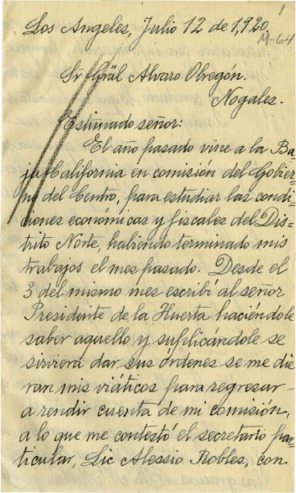 1
Los Angeles, Julio 12 de 1,920.
M-64
Sr Gräl Alvaro Obregón.
Nogales.
Estimado señor:
El año pasado vine a la Ba-
ja California en comisión del Gobier-
no del Centro, para estudiar las condi-
ciones económicas y fiscales del Dis-
trito Norte, habiendo terminado mis
trabajos el mes pasado. Desde el
3 del mismo mes escribí al señor
Presidente de la Huerta haciéndole
saber aquello y suplicándole se
sirviera dar sus órdenes se me die-
ran mis viáticos para regresar
a rendir cuenta de mi comisión,
a lo que me contestó el secretario par-
ticular, Lic Alessio Robles, con